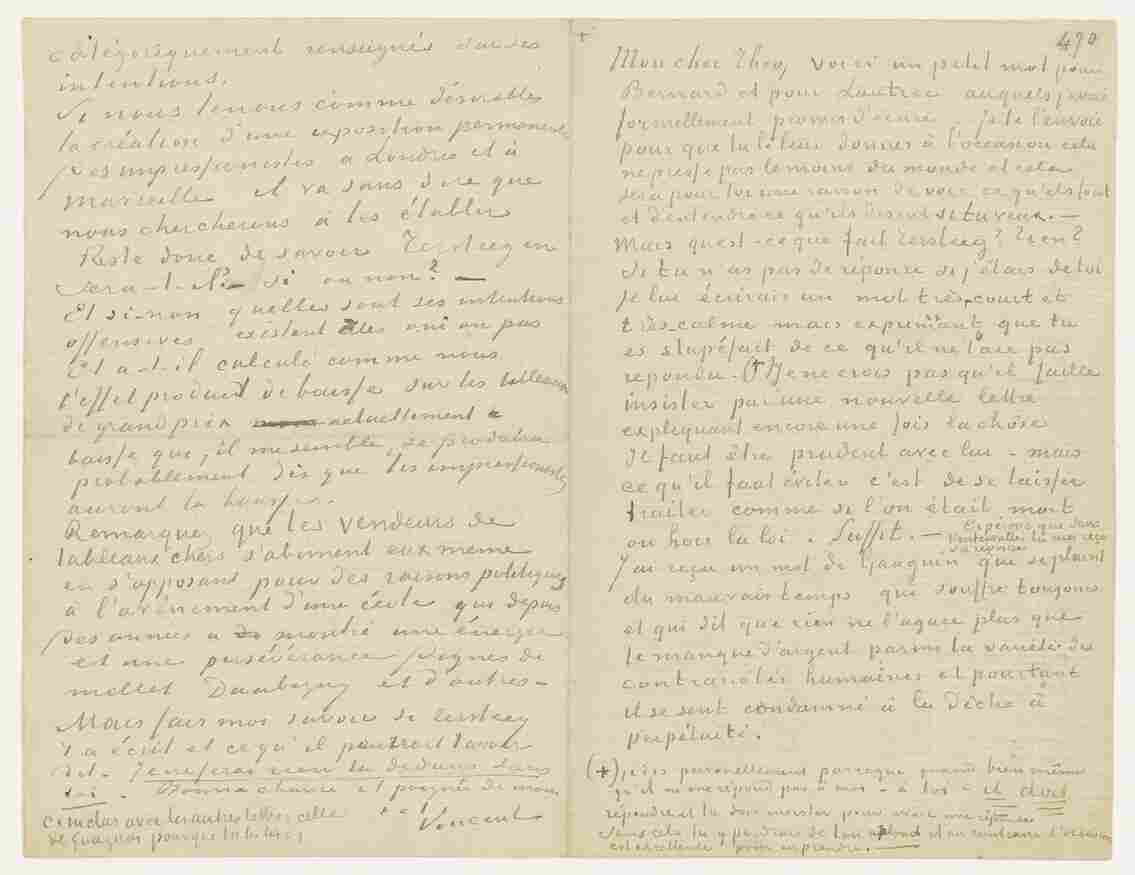 catégoriquement renseignés sur ses
intentions.
Si nous tenons comme désirables
la création d'une exposition permanente
des impressionistes à Londres et à
Marseille il va sans dire que
nous chercherons à les établir
Reste donc de savoir Tersteeg en
sera-t-il? si ou non? —
Et si-non quelles sont ses intentions
offensives existent elles oui ou pas
Et a-t-il calculé comme nous
l'effet produit de baisse sur les tableaux
de grand prix actuellement
baisse que, il me semble, se produira
probablement dès que les impressionistes
auront la hausse.
Remarquez que les vendeurs de
tableaux chers s'abiment eux meme
en s'opposant pour des raisons politiques
à l'avènement d'une école qui depuis
des années a montré une énergie
et une persévérance dignes de
millet Daubigny et d'autres —
Mais fais moi savoir si tersteeg
t'a écrit et ce qu'il pourrait t'avoir
dit. Je ne ferai rien là dedans sans
toi. Bonne chance et poignée de main
t. à t. Vincent
Ci inclus avec les autres lettres celle
de Gauguin pour que tu la lises
490
Mon cher Theo, voici un petit mot pour
Bernard et pour Lautrec auxquels j'avais
formellement promis d'écrire. Je te l'envoie
pour que tu le leur donnes à l'occasion cela
ne presse pas le moins du monde et cela
sera pour toi une raison de voir ce qu'ils font
et d'entendre ce qu'ils disent si tu veux. —
Mais qu'est-ce que fait Tersteeg? rien?
Si tu n'as pas de réponse si j'étais de toi
je lui écrirais un mot très-court et
très-calme mais exprimant que tu
es stupéfait de ce qu'il ne t'aie pas
repondu. (+) Je ne crois pas qu'il faille
insister par une nouvelle lettre
expliquant encore une fois la chose
Il faut être prudent avec lui - mais
ce qu'il faut éviter c'est de se laisser
traiter comme si l'on était mort
ou hors la loi. Suffit. — Espérons que dans
l'intervalle tu aies reçu
sa reponse
J'ai reçu un mot de Gauguin qui se plaint
du mauvais temps qui souffre toujours
et qui dit que rien ne l'agace plus que
le manque d'argent parmi la variété des
contrariétés humaines et pourtant
il se sent condamné à la dèche à
perpétuité.
(+) je dis personellement parceque quand bien même
qu'il ne me répond pas à moi - à toi - il doit
répondre et tu dois insister pour avoir une réponse
Sans cela tu y perdrais de ton aplomb et au contraire l'occasion
est excellente pour en prendre. —